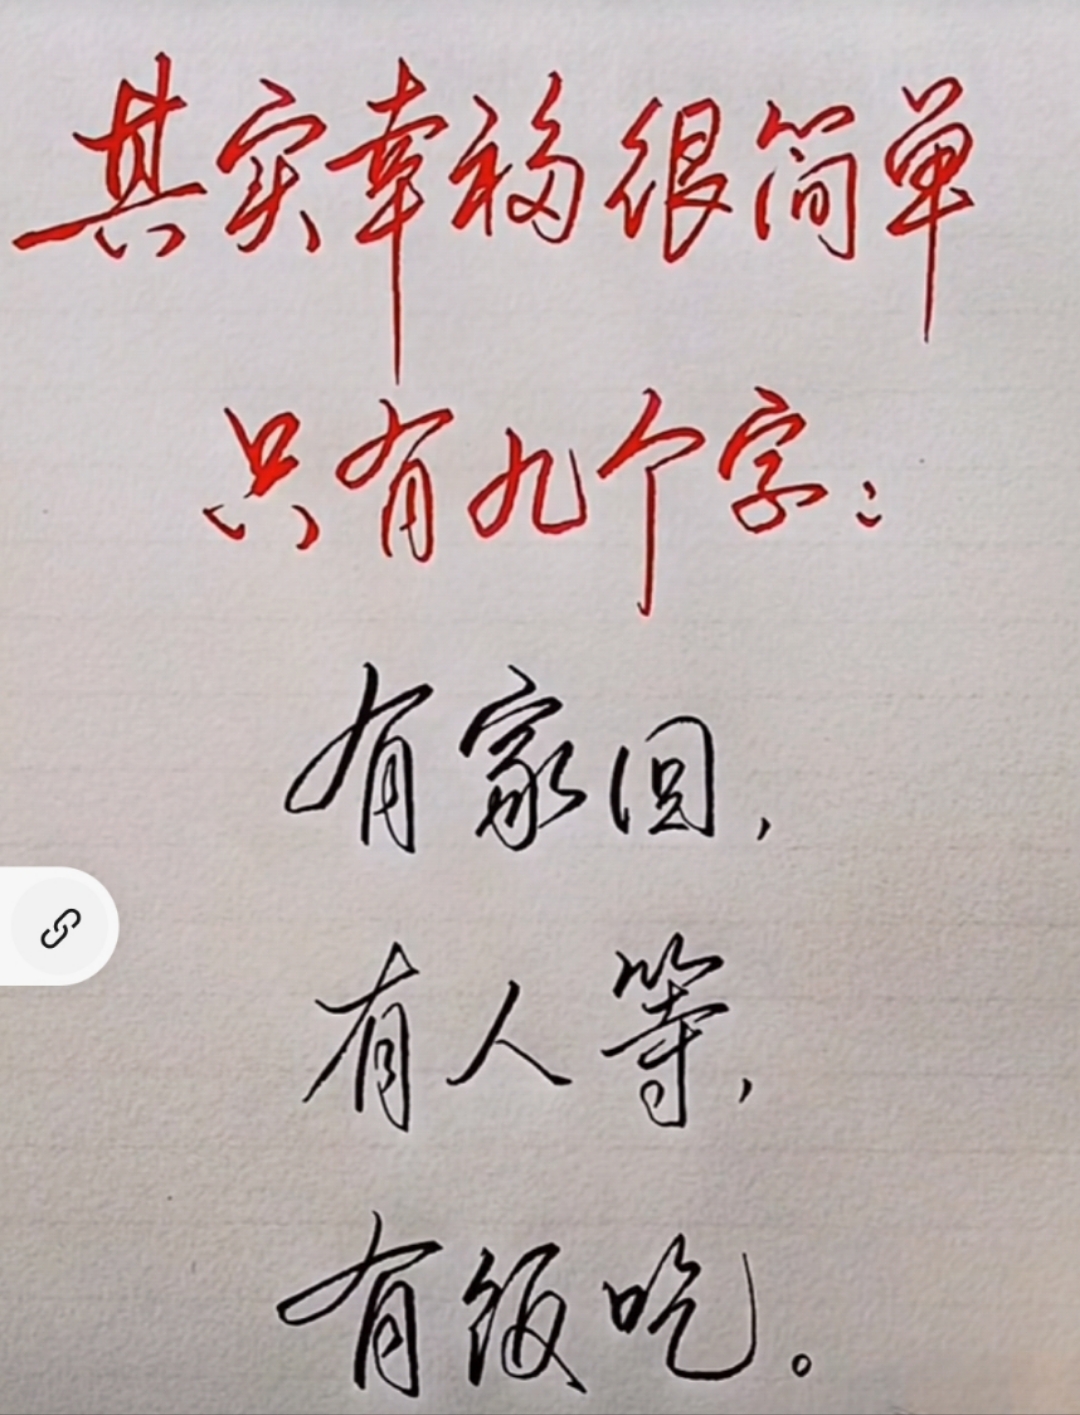 其实幸福很简单
只有九个字：
有家回，
有人等，
有饭吃。